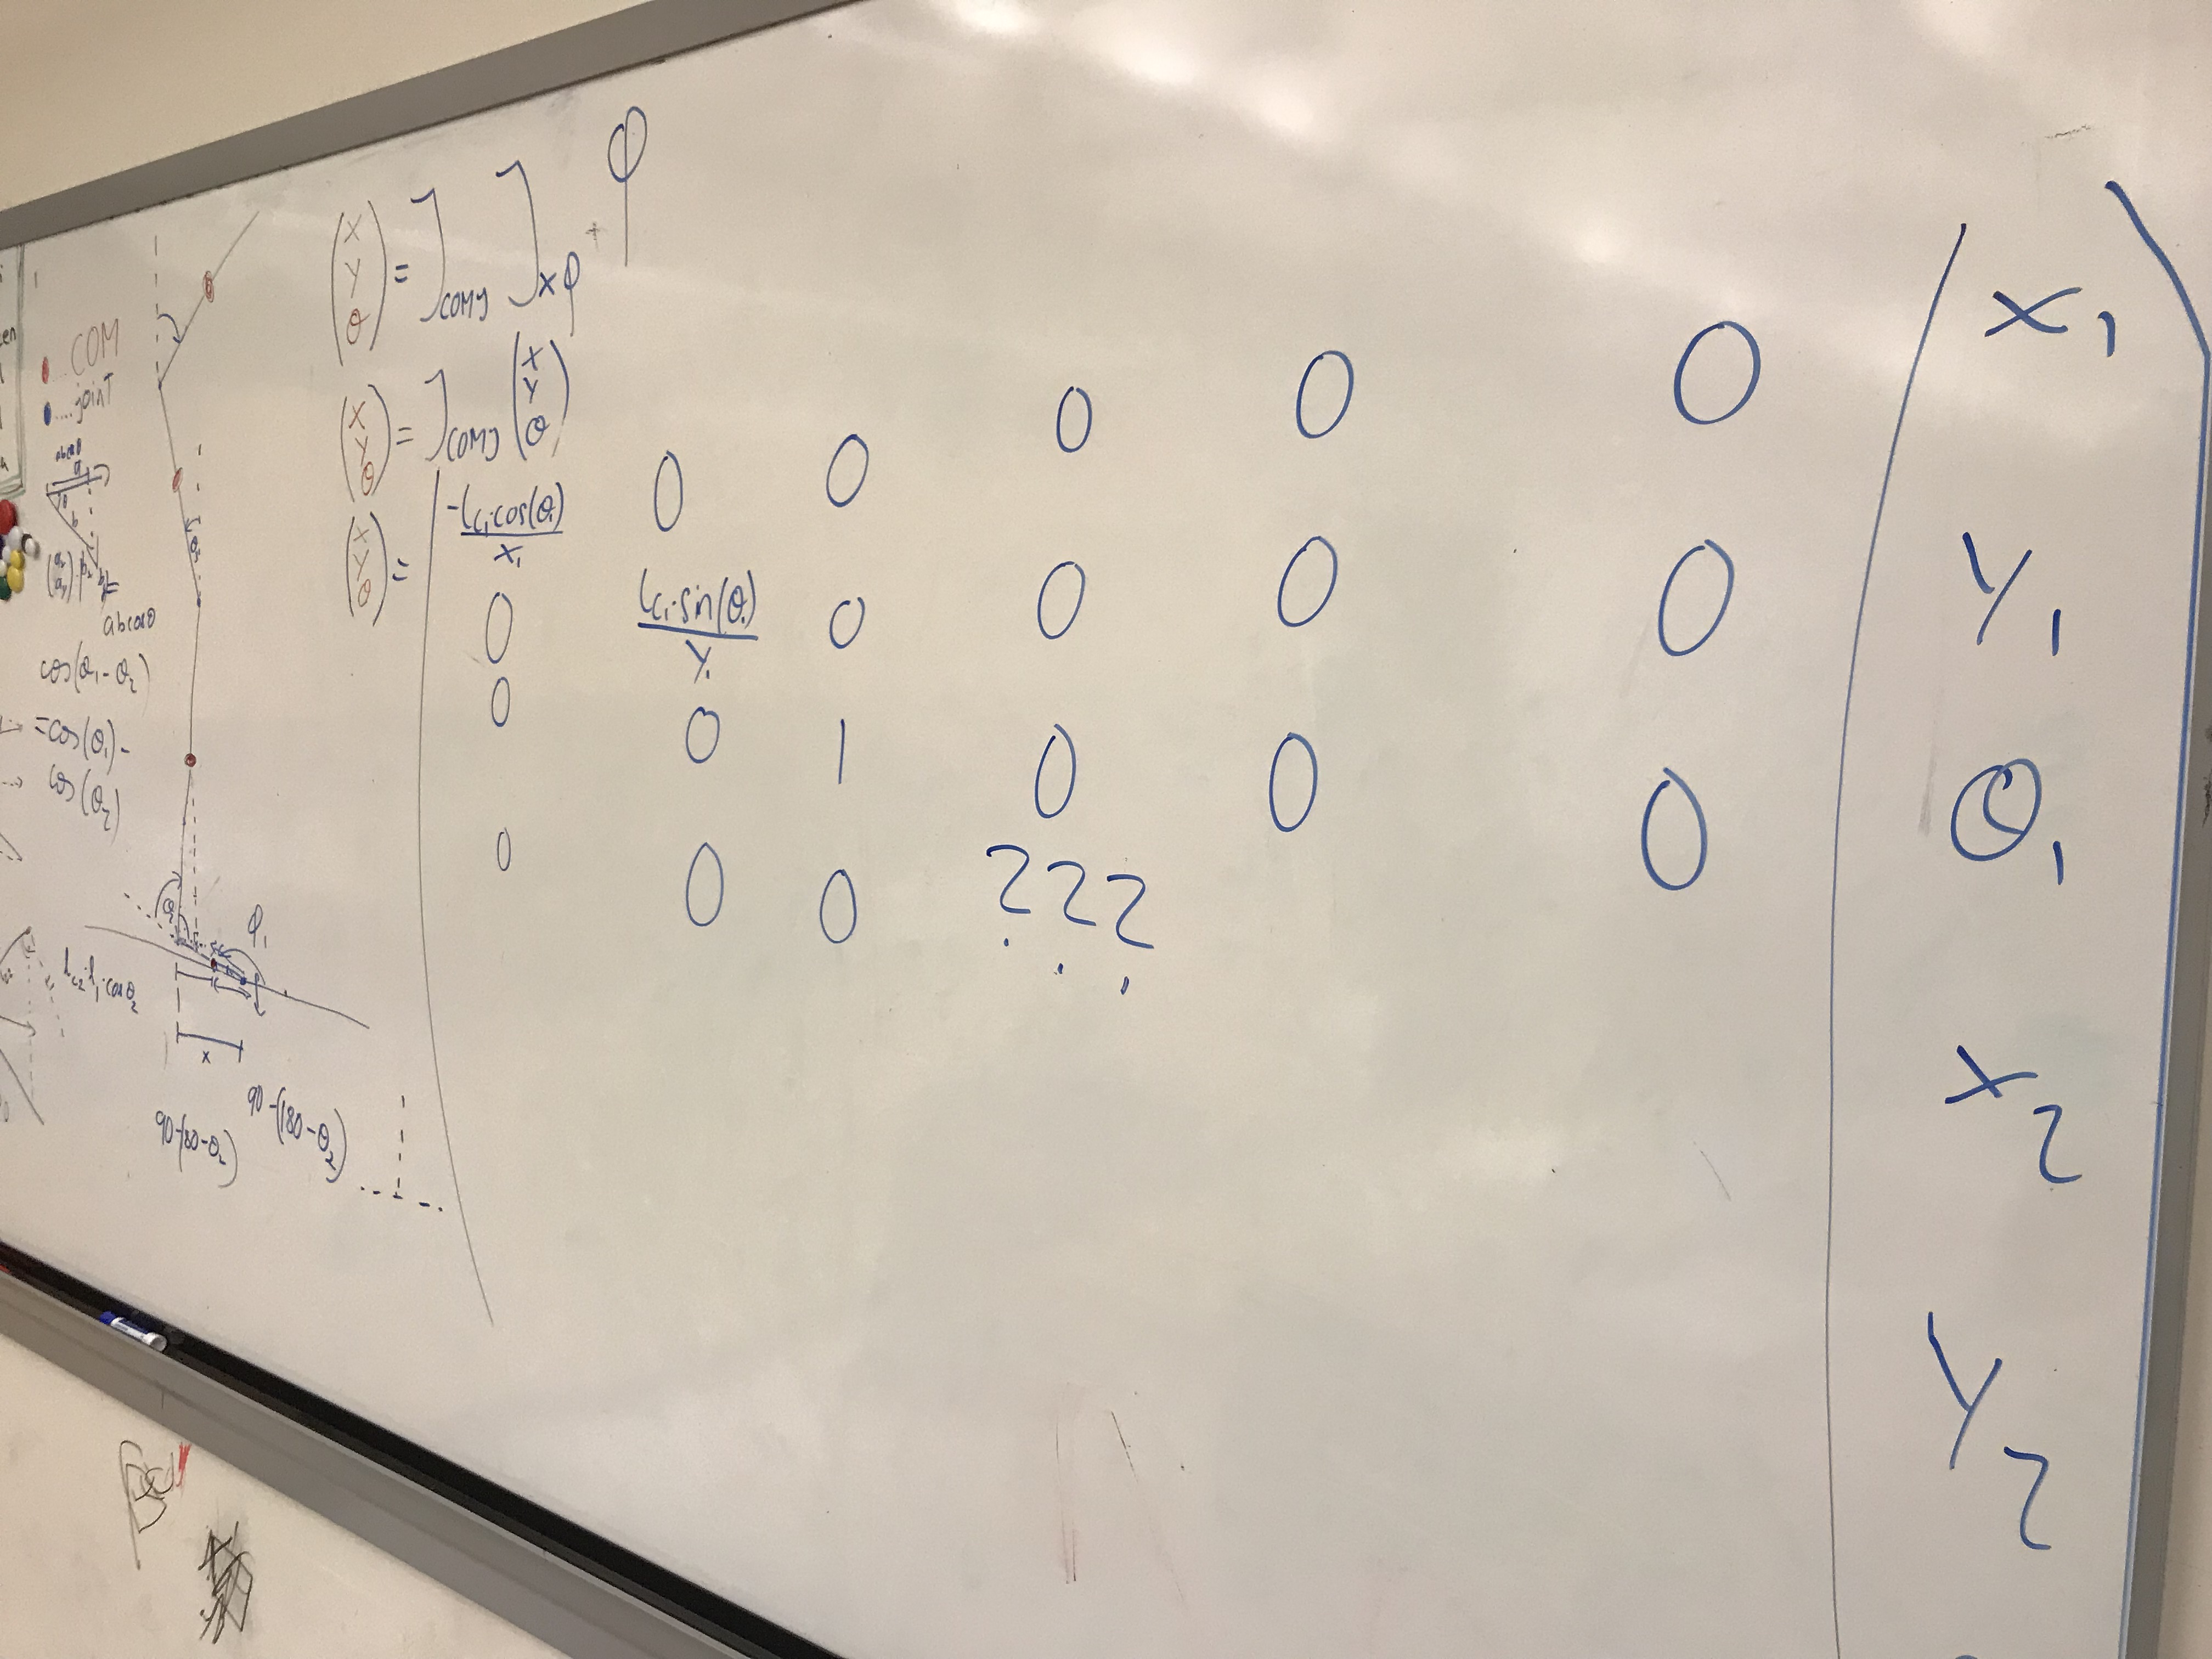 COM
....joint
abcosθ
abcosθ
cos(θ₁-θ₂)
=cos(θ₁)-
cos(θ₂)
θ₂
φ₁
l_c₂·l₁·cosθ₂
x
90-(180-θ₂)
90-(180-θ₂)
(X Y θ) = J_COMJ J_xφ + φ
(X Y θ) = J_COMJ (X Y θ)
(X Y θ) =
-l_c₁·cos(θ₁)/x₁ 0 0 0 0 0 X₁
0 l_c₁·sin(θ₁)/y₁ 0 0 0 0 Y₁
0 0 1 0 0 0 θ₁
0 0 0 ??? X₂
Y₂